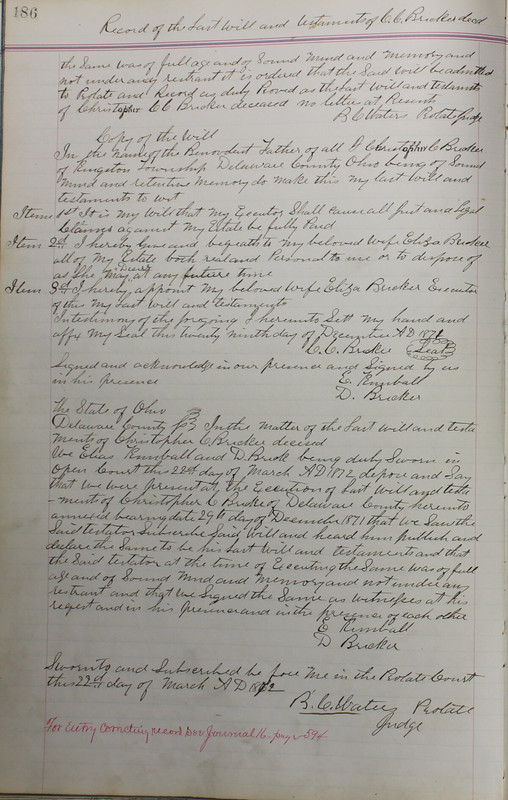 186
Record of the Last Will and testaments of C. C. Bricker decd
the Same was of full age and of Sound Mind and Memory and
not under any restrant it is ordered that the Said will be admitted
to Probate and Record as duly Proved as the Last Will and testaments
of Christopher C C Bricker deceased no letter at Present
B. C. Waters Probate Judge
Copy of the Will
In the Name of the Benevolent Father of all I Christopher C Bricker
of Kingston Township Delaware County Ohio being of Sound
Mind and retentive Memory do make this my last will and
testaments to wit
Item 1st It is my Will that My Executor Shall cause all Just and Legal
Claims against My Estate be fully Paid
Item 2d I hereby Give and bequeath to my beloved Wife Eliza Bricker
all of My Estate both real and Personal to use or to dispose of
as She May desire at any future time
Item 3d I hereby appoint My beloved Wife Eliza Bricker Executor
of this my last will and testaments
In testimony of the foregoing I hereunto Sett my hand and
affix My Seal this twenty ninth day of December A D 1871
C. C. Bricker Seal
Signed and acknowledge in our presence and Signed by us
in his presence
E. Kimball
D. Bricker
The State of Ohio
Delaware County SS In the Matter of the Last will and testa
ments of Christopher C. Bricker deceased
We Elias Kimball and D. Brick being duly Sworn in
Open Court this 22d day of March A D 1872, depose and Say
that we were present at the Execution of Last Will and testa
-ment of Christopher C Bricker of Delaware County hereunto
annexed bearing date 29th day of December 1871 that we Saw the
Said testator Subscribe Said Will and heard him publish and
declare the Same to be his Last Will and testament and that
the Said testator at the time of Executing the Same was of full
age and of Sound Mind and Memory and not under any
restrant and that We Signed the Same as Witnesses at his
request and in his Presence and in the presence of each other
E Kimball
D Bricker
Sworn to and Subscribed be fore Me in the Probate Court
this 22d day of March A D 1872
B. C. Waters Probate
Judge
For Entry Correcting record See Journal 16 - page 594